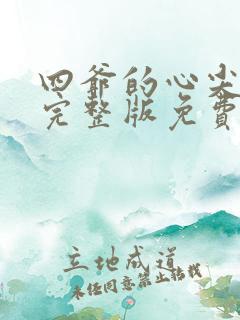 四爷的心尖
完整版免费
立地成道
未经同意禁止转载